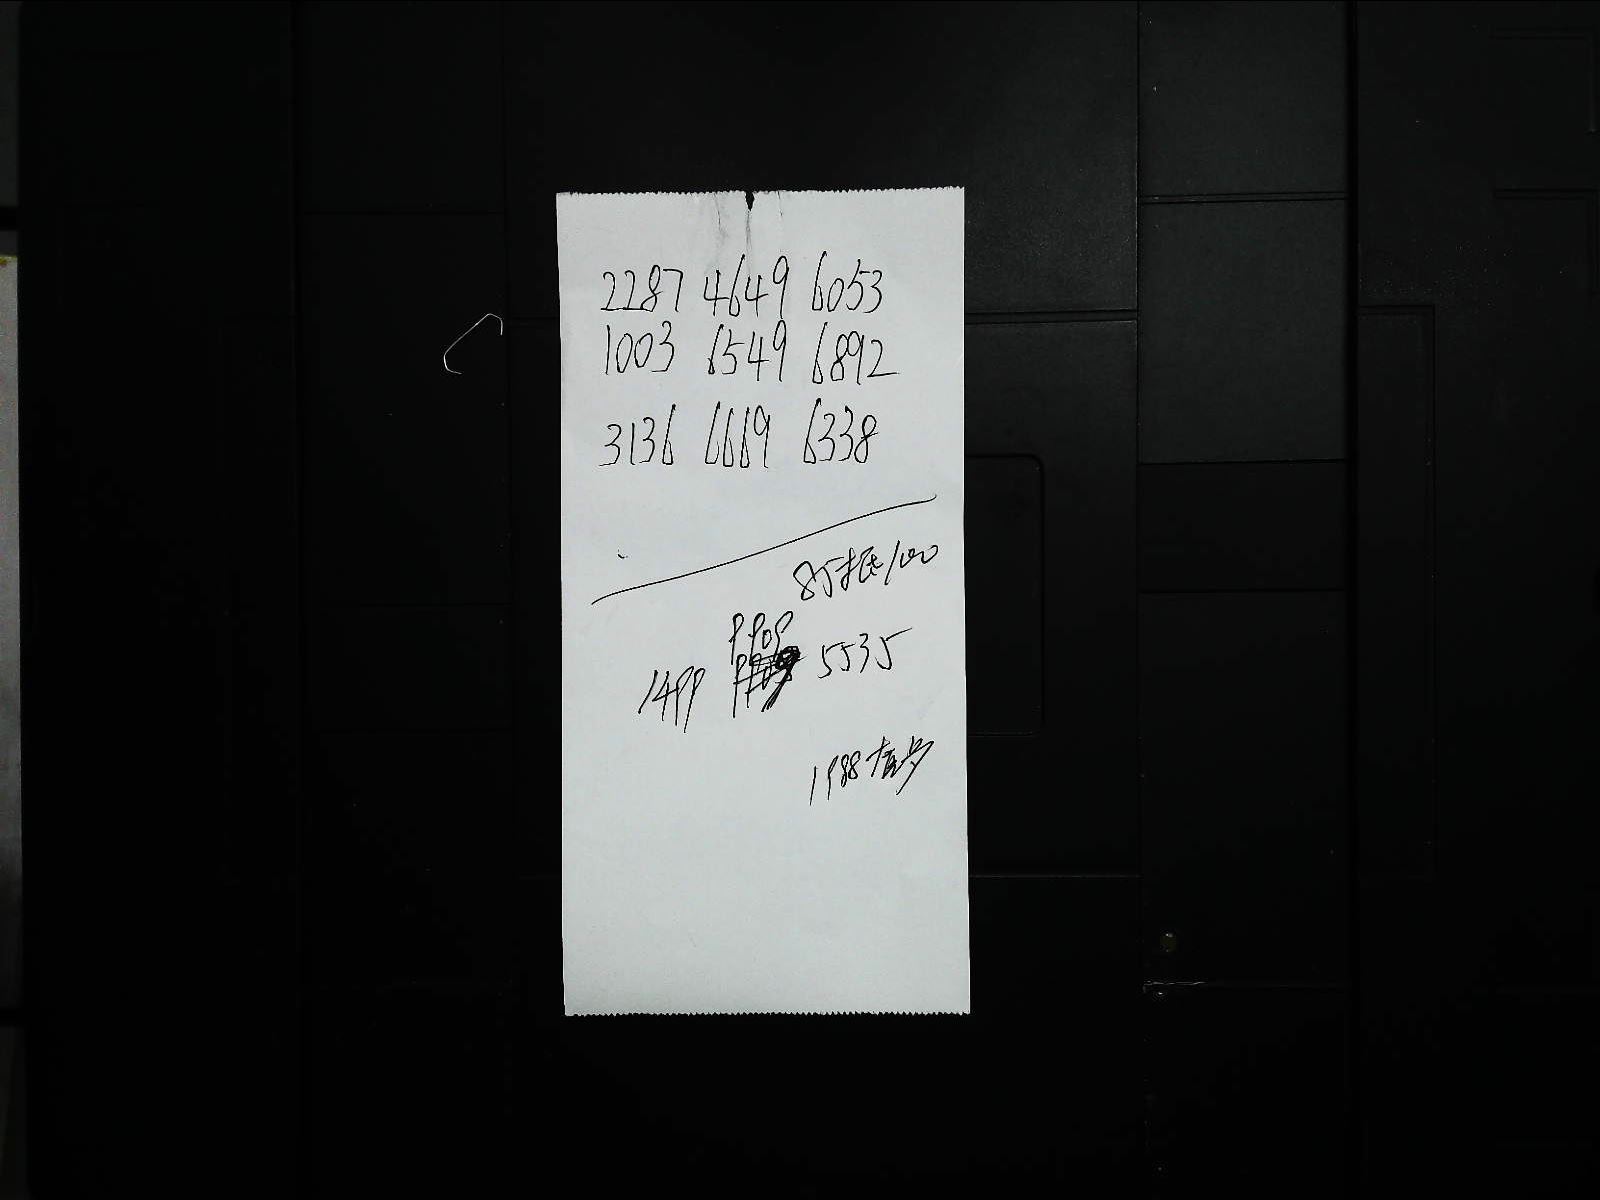 2287 4649 6053
1003 6549 6892
3136 6669 6338
85抵100
9909
1499 5535
1988有步